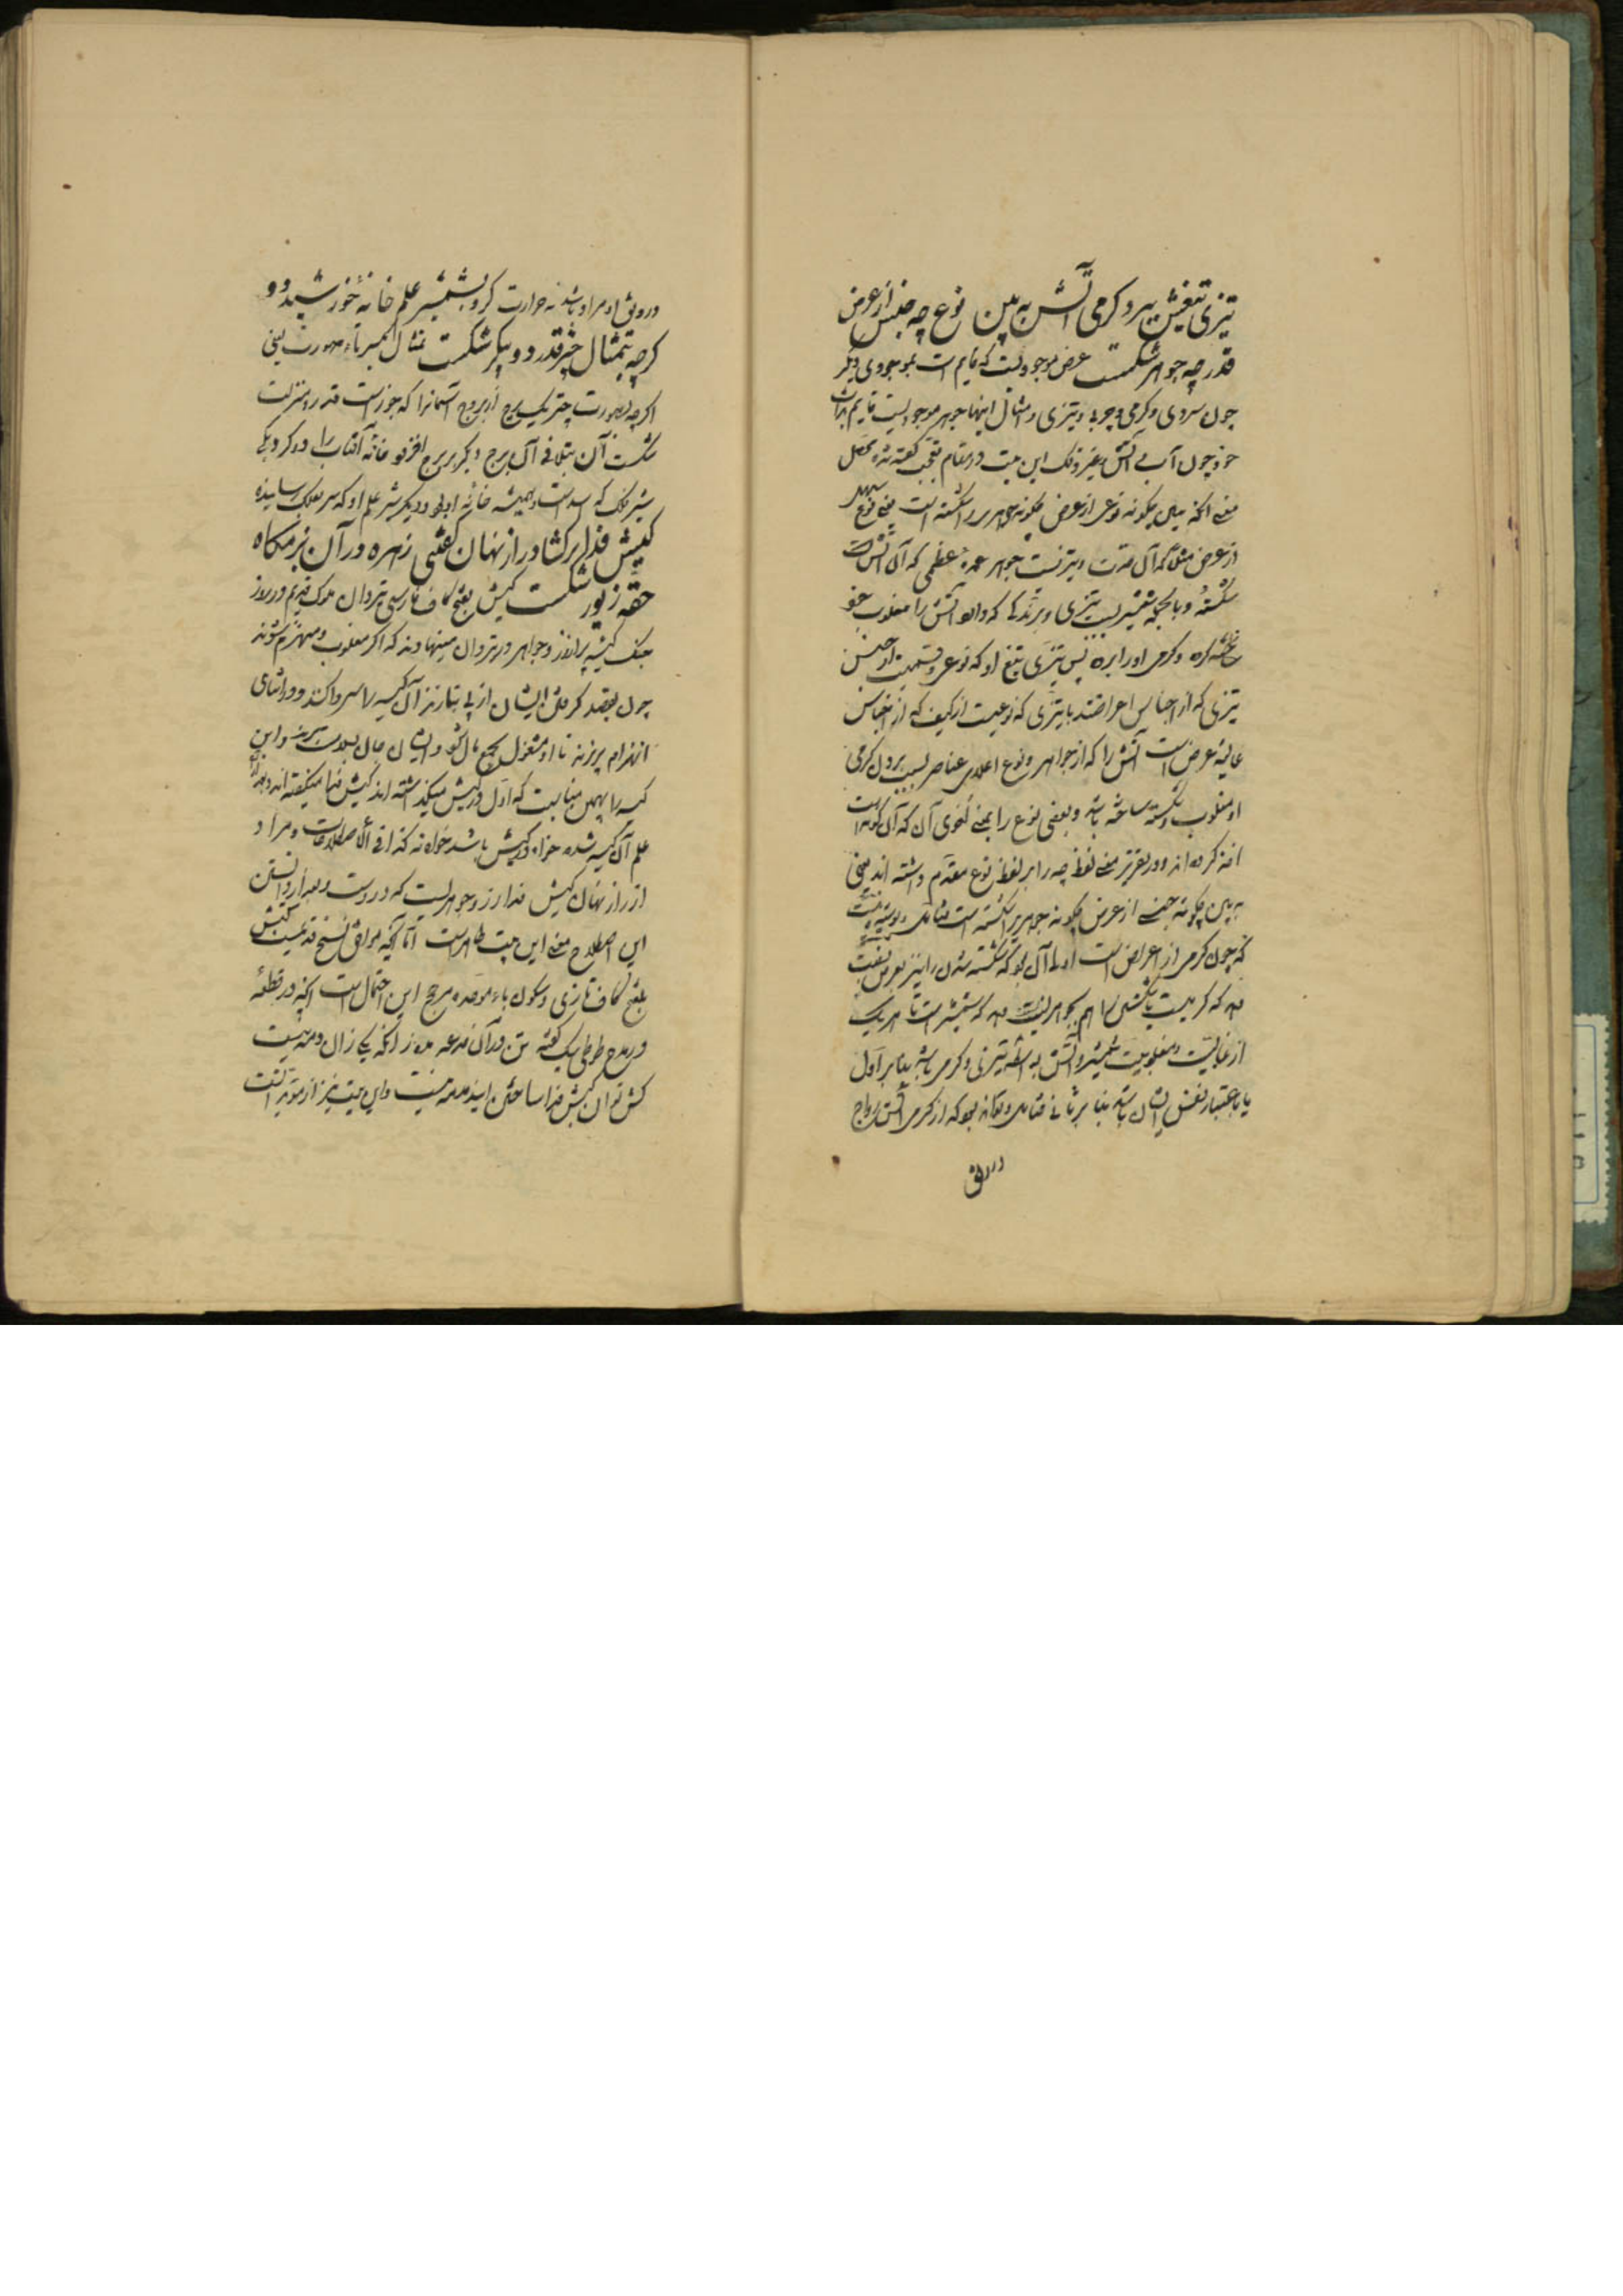 تیزی تیغش ببرد گرمی آتش ببین نوع چه جنس از عرض
قدر چه جوهر شکست عرض موجودیست که قایم است بموجودی دیگر
چون سردی و گرمی و چربی و تیزی و مثال اینها جوهر موجودیست قایم بذات
خود چون آب و آتش و غیر ذلک این بیت در مقام تعجب گفته شده محصل
معنی آنکه ببین چگونه نوعی از عرض چگونه جوهری را شکسته است یعنی نوع
از عرض مثلا که آن حدت و تیزیست جوهر عمده عظمی که آن آتش است
شکسته و بالجمله شمشیر بسبب تیزی و برندگی که دارد آتش را مغلوب خود
ساخته کرده و گرمی او را برده پس تیزی تیغ او که نوعی و قسمیست از جنس
تیزی که از اجناس اعراضند یا تیزی که نوعیست از کیف که از اجناس
عالیه عرض است آتش را که از جواهر و نوع اعلای عناصر بسبب بردن گرمی
او مغلوب و شکسته ساخته باشد و بعضی نوع را بمعنی لغوی آن که آن گونه است
اخذ کرده اند و در تقریر معنی لفظ چه را بر لفظ نوع مقدم داشته اند یعنی
به بین چگونه جنسی از عرض چگونه جوهری را شکسته است
که چون گرمی از اعراض است اولی آن بود که شکسته شدن را نیز بعرض نسبت
دهد که گرمیست یا شکستن را هم بجوهر نسبت دهد که شمشیر است تا هر یک
از غالبیت و مغلوبیت شمشیر و آتش به اعتبار تیزی و گرمی باشد بنابر اول
یا باعتبار نفس ایشان باشد بنابر ثانی و تواند بود که از گرمی آتش رواج
ورونق
ورونق او مراد باشد نه حرارت کرد بشمشیر علم خانه خورشید دو
گرچه بتمثال چتر قدر دو پیکر شکست تمثال بکسر تاء صورت یعنی
اگرچه بصورت چتر یک برج از بروج آسمانرا که جوزاست قدر و منزلت
شکست آن بتلافی آن برج دیگر بر برج افزود خانه آفتاب را دو کرد یکی
شیر فلک که اسد است و همیشه خانه او بود و دیگر شیر علم او که سر بفلک رسانیده
کیش فدا برکشاد راز نهان گفتیی زهره در آن بزمگاه
حقه زیور شکست کیش بفتح کاف فارسی تیردان ملوک قدیم در روز
جنگ کیسه پر از زر و جواهر در تیردان مینهادند که اگر مغلوب و منهزم شوند
چون بقصد گرفتن ایشان از پی بتازند آن کیسه را سر واکنند و در اثنای
انهزام بریزند تا او مشغول بجمع مال شود و ایشان جان بسلامت برند و این
کیسه را بهمین مناسبت که اول در کیش میگذاشته اند کیش فدا میگفته اند
علم آن کیسه شده خواه در کیش باشد خواه نه کذا فی الاصطلاحات و مراد
از راز نهان کیش فدا زر و جوهریست که در اوست و بعد از دانستن
این اصطلاح معنی این بیت ظاهر است اما آنچه موافق نسخ قدیمست کبش
بفتح کاف تازی و سکون باء موحده مرجح این احتمال است آنچه در قطعه
در مدح طوطی بیک گفته
کش توان کبش فدا ساختن امید مدمه نیست و این بیت نیز از مؤید است